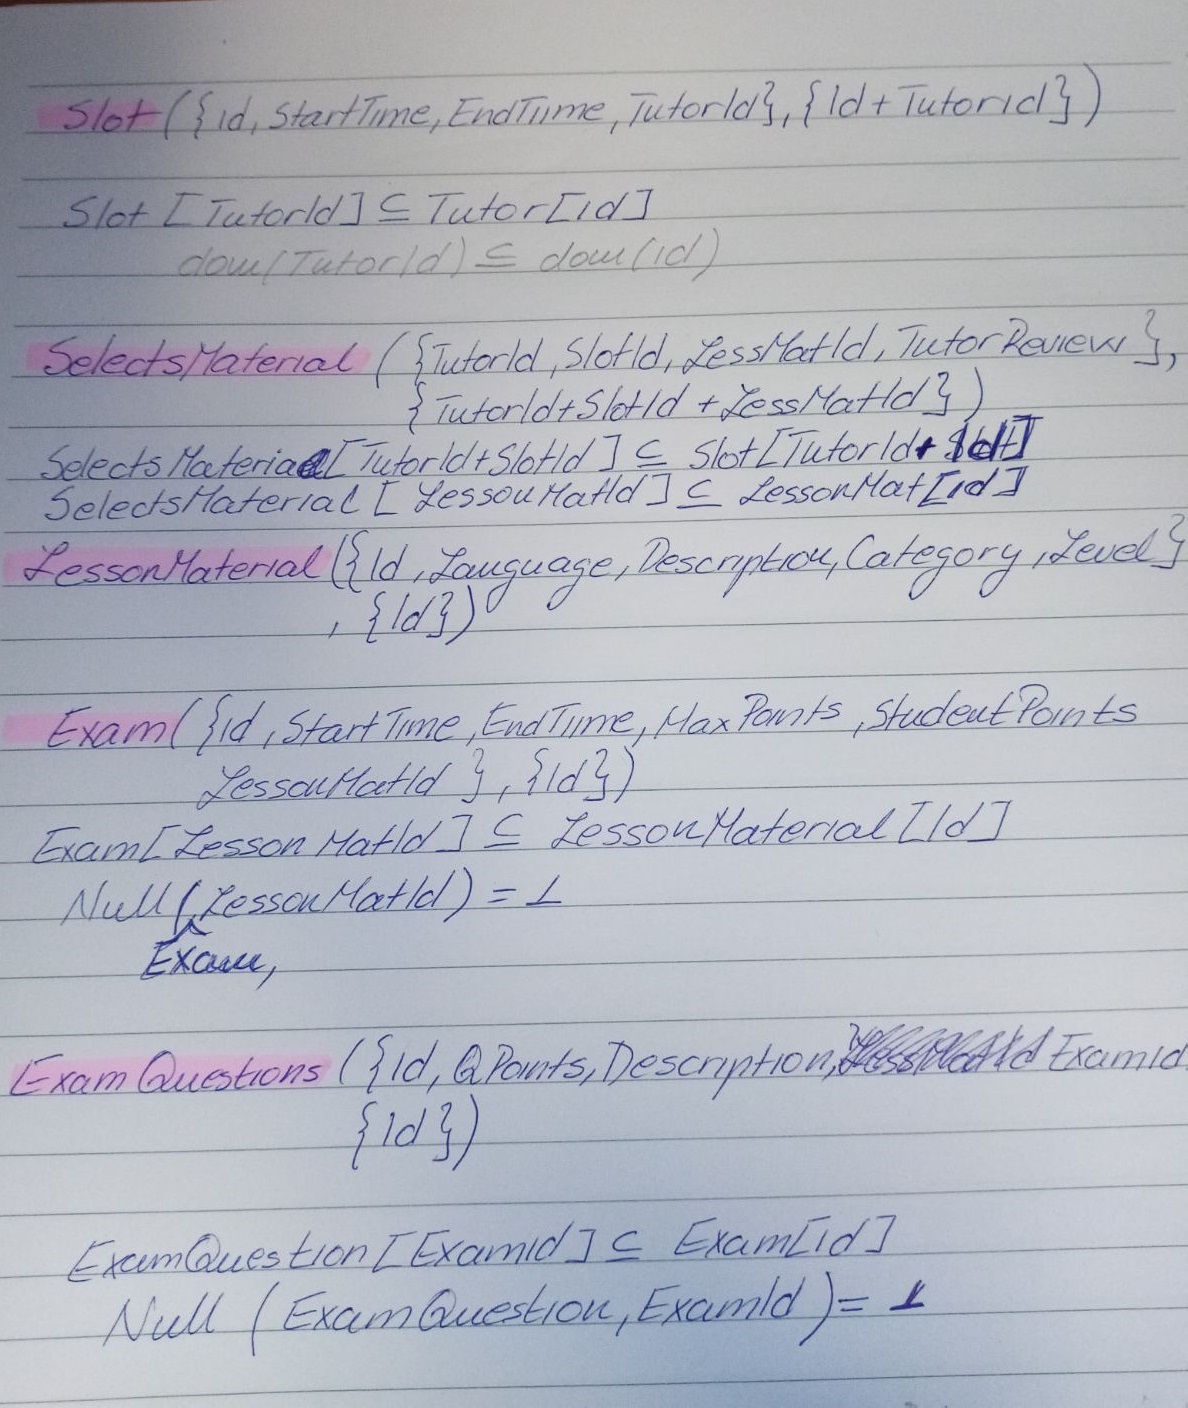 Slot ({id, StartTime, EndTime, TutorId}, {Id+TutorId})
Slot [TutorId] ⊆ Tutor[id]
dom(TutorId) ⊆ dom(id)
SelectsMaterial ({TutorId, SlotId, LessMatId, TutorReview},
{TutorId+SlotId+LessMatId})
SelectsMaterial[TutorId+SlotId] ⊆ Slot[TutorId+Id]
SelectsMaterial[LessonMatId] ⊆ LessonMat[id]
LessonMaterial({Id, Language, Description, Category, Level}
, {Id})
Exam({id, StartTime, EndTime, MaxPoints, StudentPoints
LessonMatId}, {Id})
Exam[LessonMatId] ⊆ LessonMaterial[Id]
Null(LessonMatId) = ⊥
Exam,
ExamQuestions ({id, QPoints, Description, ExamId
{Id})
ExamQuestion[ExamId] ⊆ Exam[id]
Null (ExamQuestion, ExamId) = ⊥